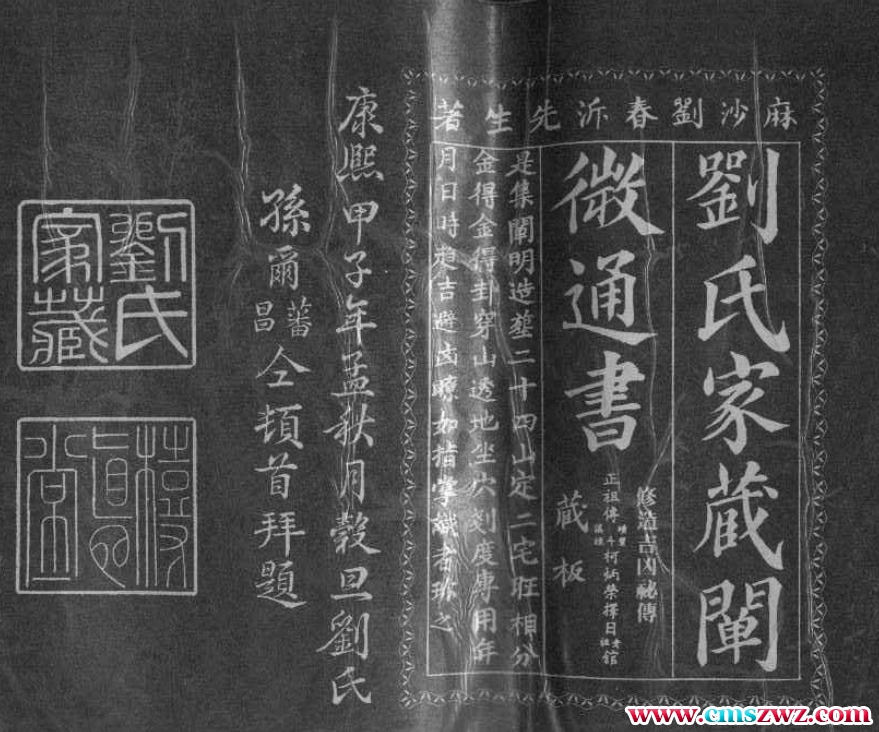 麻沙劉春沂先生著
劉氏家藏闡
微通書
藏板
修造吉凶祕傳
正祖傳
柯炳榮擇日
館
是集闡明造塟二十四山定二宅旺相分
金得金得卦穿山透地坐穴刻度專用年
月日時趍吉避凶瞭如指掌識者珎之
康熙甲子年孟秋月穀旦劉氏
孫爾蕃昌仝頓首拜題
劉氏家藏
www.cmszwz.com